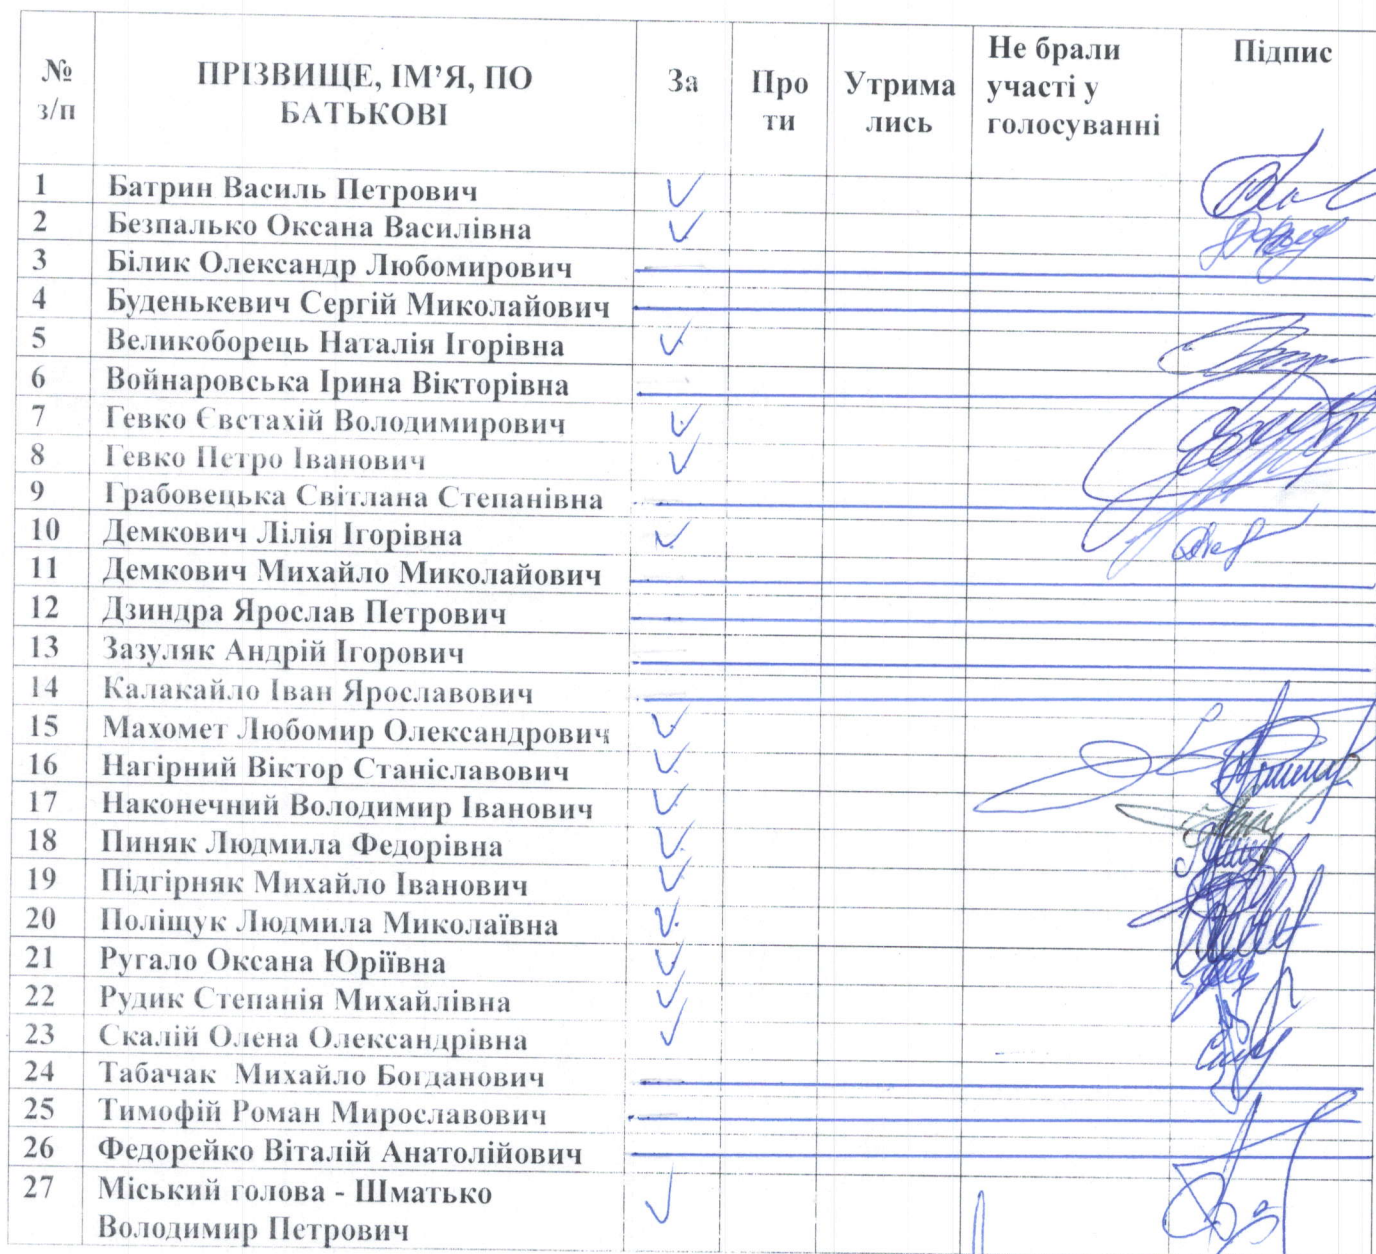 № з/п
ПРІЗВИЩЕ, ІМ’Я, ПО БАТЬКОВІ
За
Про ти
Утрима лись
Не брали участі у голосуванні
Підпис
1 Батрин Василь Петрович
2 Безпалько Оксана Василівна
3 Білик Олександр Любомирович
4 Буденькевич Сергій Миколайович
5 Великоборець Наталія Ігорівна
6 Войнаровська Ірина Вікторівна
7 Гевко Євстахій Володимирович
8 Гевко Петро Іванович
9 Грабовецька Світлана Степанівна
10 Демкович Лілія Ігорівна
11 Демкович Михайло Миколайович
12 Дзиндра Ярослав Петрович
13 Зазуляк Андрій Ігорович
14 Калакайло Іван Ярославович
15 Махомет Любомир Олександрович
16 Нагірний Віктор Станіславович
17 Наконечний Володимир Іванович
18 Пиняк Людмила Федорівна
19 Підгірняк Михайло Іванович
20 Поліщук Людмила Миколаївна
21 Ругало Оксана Юріївна
22 Рудик Степанія Михайлівна
23 Скалій Олена Олександрівна
24 Табачак Михайло Богданович
25 Тимофій Роман Мирославович
26 Федорейко Віталій Анатолійович
27 Міський голова - Шматько
Володимир Петрович